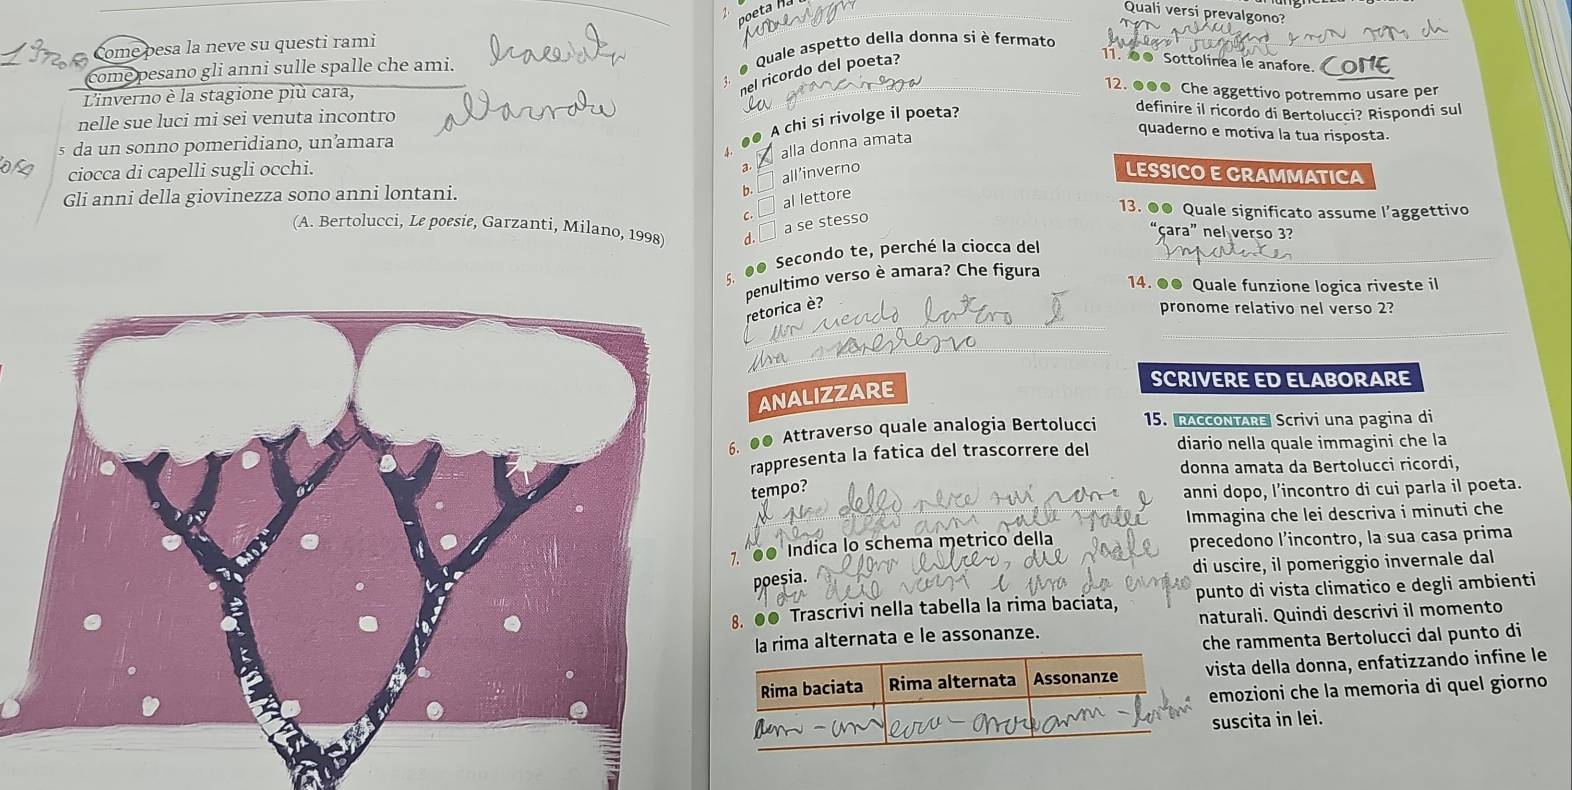 Come pesa la neve su questi rami
come pesano gli anni sulle spalle che ami.
L'inverno è la stagione più cara,
nelle sue luci mi sei venuta incontro
5 da un sonno pomeridiano, un'amara
ciocca di capelli sugli occhi.
Gli anni della giovinezza sono anni lontani.
(A. Bertolucci, Le poesie, Garzanti, Milano, 1998)
2. poeta ha
3. ● Quale aspetto della donna si è fermato
nel ricordo del poeta?
la
4. ●● A chi si rivolge il poeta?
a. alla donna amata
b. all'inverno
c. al lettore
d. a se stesso
5. ●● Secondo te, perché la ciocca del
penultimo verso è amara? Che figura
retorica è?
È un
una
ANALIZZARE
6. ●● Attraverso quale analogia Bertolucci
rappresenta la fatica del trascorrere del
tempo?
il peso della neve sui rami e
il peso degli anni sulle spalle
7. ●● Indica lo schema metrico della
poesia.
8. ●● Trascrivi nella tabella la rima baciata,
la rima alternata e le assonanze.
Rima baciata Rima alternata Assonanze
Quali versi prevalgono?
11. ●● Sottolinea le anafore. COME
12. ●●● Che aggettivo potremmo usare per
definire il ricordo di Bertolucci? Rispondi sul
quaderno e motiva la tua risposta.
LESSICO E GRAMMATICA
13. ●● Quale significato assume l'aggettivo
"cara" nel verso 3?
14. ●● Quale funzione logica riveste il
pronome relativo nel verso 2?
SCRIVERE ED ELABORARE
15. RACCONTARE Scrivi una pagina di
diario nella quale immagini che la
donna amata da Bertolucci ricordi,
anni dopo, l'incontro di cui parla il poeta.
Immagina che lei descriva i minuti che
precedono l'incontro, la sua casa prima
di uscire, il pomeriggio invernale dal
punto di vista climatico e degli ambienti
naturali. Quindi descrivi il momento
che rammenta Bertolucci dal punto di
vista della donna, enfatizzando infine le
emozioni che la memoria di quel giorno
suscita in lei.